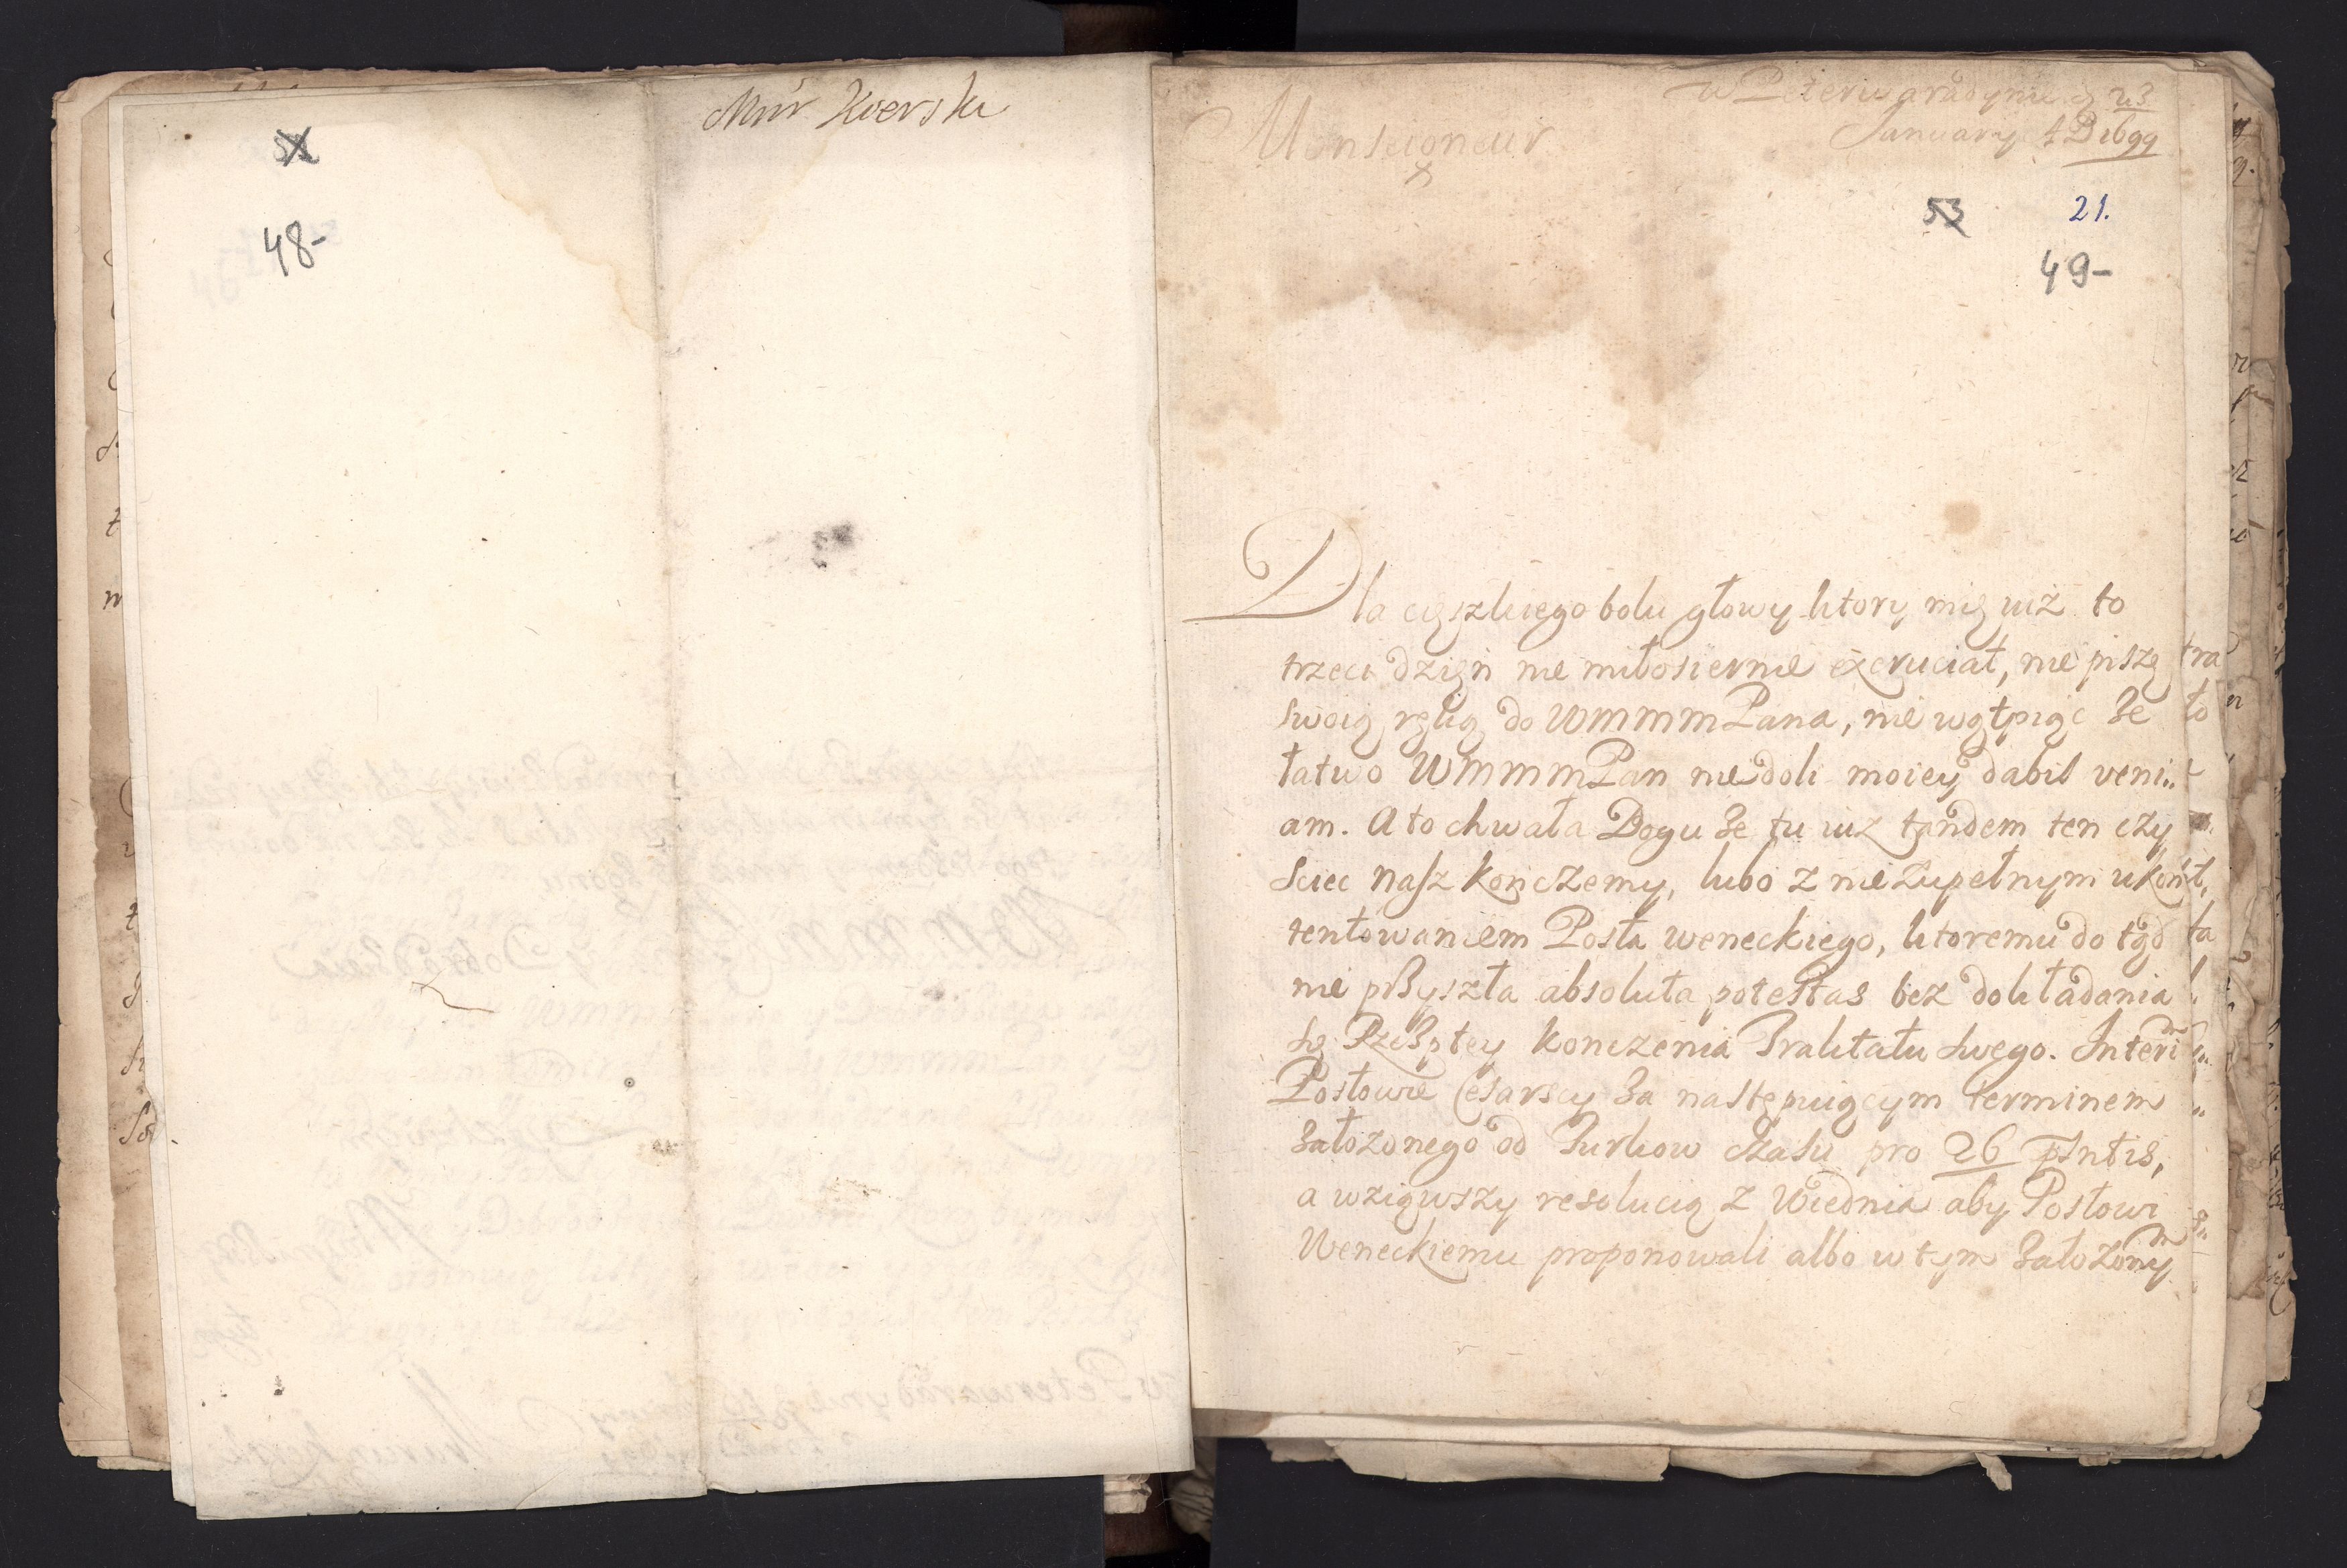 Mür Koerski
48-
w Peterwaradynie 23
January AD 1699
Monseigneur
53
21.
49-
Dla cięszkiego bolu głowy ktory mię iuż to
trzeci dzięń nie miłosiernie excruciat, nie piszę
swoią ręką do WmmmPana, nie wątpiąc że
łatwo WmmmPan niedoli moiey dabit veni„
am. A to chwała Bogu że tu iuż tandem ten czy
sciec nasz kończemy, lubo z nie zupełnym ukon„
tentowaniem Posła weneckiego, ktoremu do tąd
nie przyszła absoluta potestas bez dokładania
się Rzeczptey konczenia Traktatu swego. Interim
Posłowie Cesarscy za następuiącym terminem
założonego od Turkow czasu pro 26 psntis,
a wziąwszy resolucią z Wiednia aby Posłowi
Weneckiemu proponowali albo w tym założonym